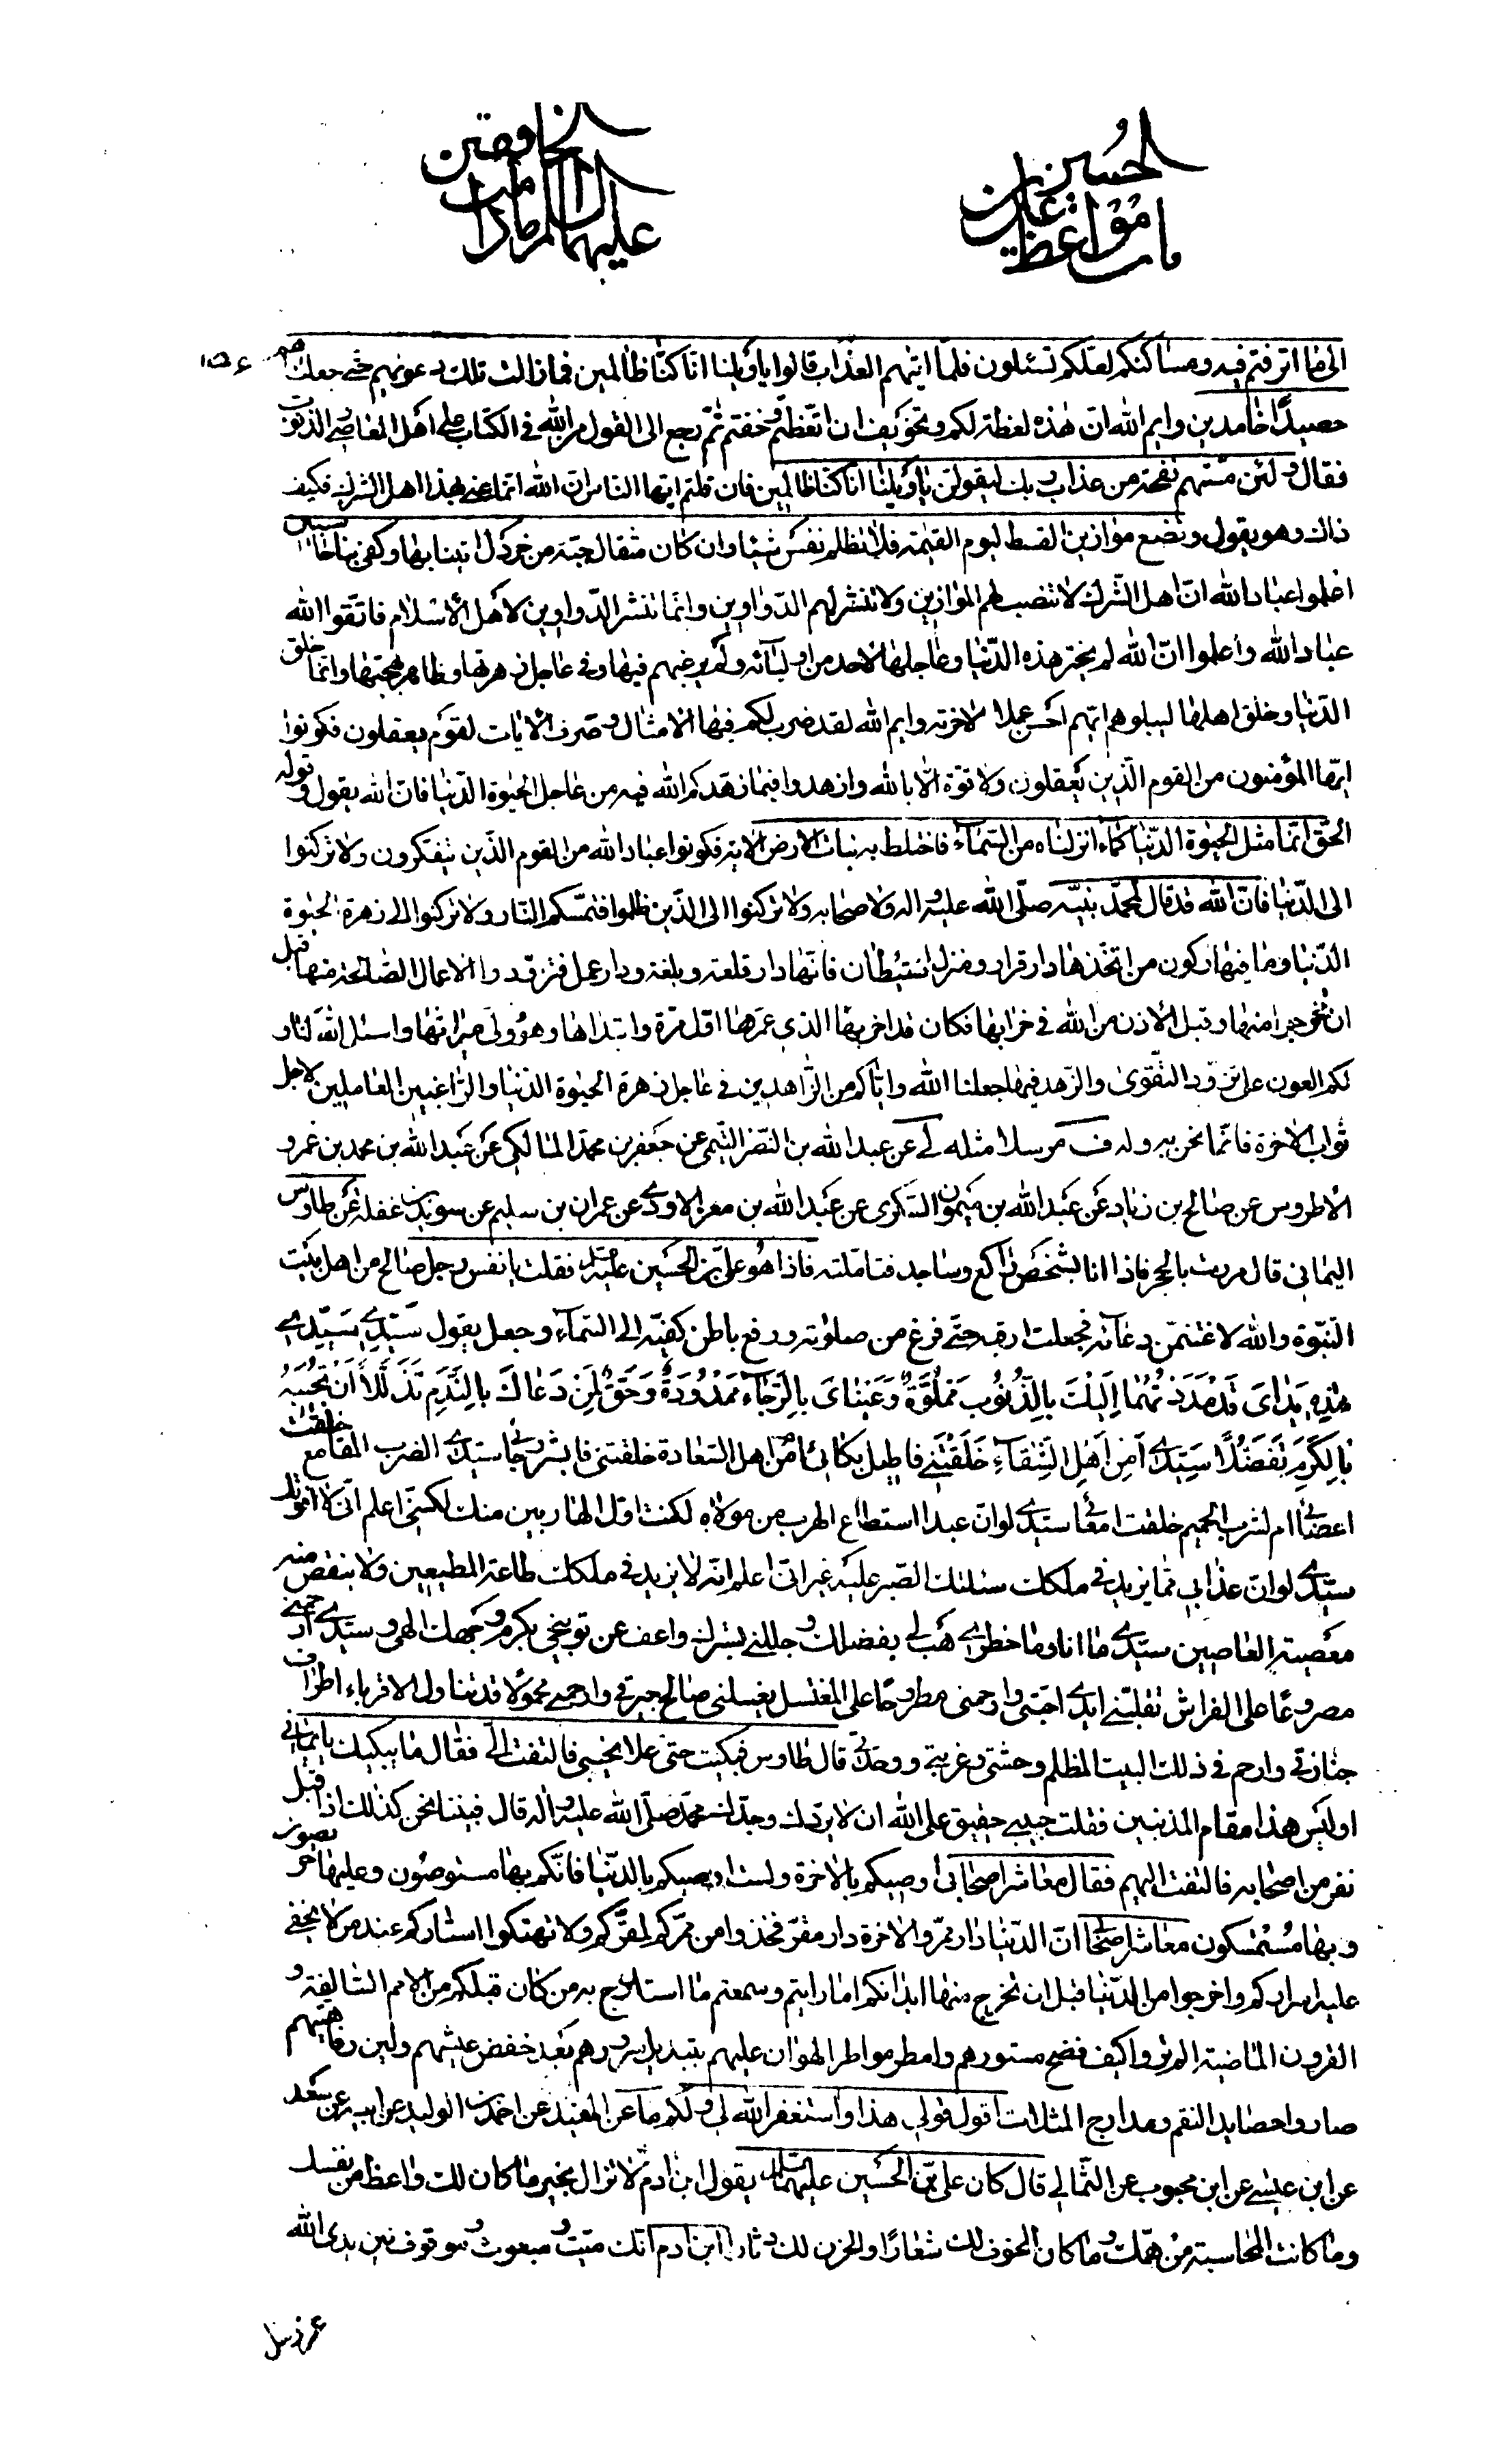 باب مواعظ علي بن الحسين
عليهما السلام ما دامت الخافقين
١٥٦
الى ما اترفتم فيه ومساكنكم لعلكم تسئلون فلما اتيهم العذاب قالوا يا ويلنا انا كنا ظالمين فما زالت تلك دعويهم حتى جعلناهم
حصيدًا خامدين وايم الله ان هذه لعظة لكم وتخويف ان اتعظتم وخفتم ثم رجع الى القول من الله في الكتاب على اهل المعاصي والذنوب
فقال ولئن مستهم نفحة من عذاب ربك ليقولن يا ويلنا انا كنا ظالمين فان قلتم ايها الناس ان الله انما عنى بهذا اهل الشرك فكيف
ذلك وهو يقول ونضع موازين القسط ليوم القيمة فلا تظلم نفس شيئا وان كان مثقال حبة من خردل اتينا بها وكفى بنا حاسبين
اعلموا عباد الله ان اهل الشرك لا تنصب لهم الموازين ولا تنشر لهم الدواوين وانما تنشر الدواوين لاهل الاسلام فاتقوا الله
عباد الله واعلموا ان الله لم يختر هذه الدنيا وعاجلها لاحد من اوليائه ولم يرغبهم فيها وفي عاجل زهرتها وظاهر بهجتها وانما خلق
الدنيا وخلق اهلها ليبلوهم ايهم احسن عملا لاخرته وايم الله لقد ضرب لكم فيها الامثال وصرف الايات لقوم يعقلون فكونوا
ايها المؤمنون من القوم الذين يعقلون ولا قوة الا بالله وازهدوا فيما زهدكم الله فيه من عاجل الحيوة الدنيا فان الله يقول وقوله
الحق انما مثل الحيوة الدنيا كماء انزلناه من السماء فاختلط به نبات الارض الاية فكونوا عباد الله من القوم الذين يتفكرون ولا تركنوا
الى الدنيا فان الله قد قال لمحمد نبيه صلى الله عليه واله ولاصحابه ولا تركنوا الى الذين ظلموا فتمسكم النار ولا تركنوا الى زهرة الحيوة
الدنيا وما فيها ركون من اتخذها دار قرار ومنزل استيطان فانها دار قلعة وبلغة ودار عمل فتزودوا الاعمال الصالحة منها قبل
ان تخرجوا منها وقبل الاذن من الله في خرابها فكان قد اخربها الذي عمرها اول مرة وابتداها وهو ولي ميراثها واسئل الله لنا و
لكم العون على تزود التقوى والزهد فيها جعلنا الله واياكم من الزاهدين في عاجل زهرة الحيوة الدنيا والراغبين العاملين لاجل
ثواب الاخرة فانما نحن به وله ف مرسلا مثله لي عن عبد الله بن النضر التيمي عن جعفر بن محمد المالكي عن عبد الله بن محمد بن عمرو
الاطروس عن صالح بن زياد عن عبد الله بن ميمون السكري عن عبد الله بن معز الاودي عن عمران بن سليم عن سويد بن غفلة عن طاوس
اليماني قال مررت بالحجر فاذا انا بشخص راكع وساجد فتاملته فاذا هو علي بن الحسين عليه السلام فقلت يا نفس رجل صالح من اهل بيت
النبوة والله لاغتنمن دعائه فجعلت ارقبه حتى فرغ من صلوته ورفع باطن كفيه الى السماء وجعل يقول سيدي سيدي
هٰذِهِ يَدَايَ قَدْ مَدَدْتُهُمَا اِلَيْكَ بِالذُّنُوبِ مَمْلُوَّةٌ وَعَيْنَايَ بِالرَّجَاءِ مَمْدُودَةٌ وَحَقٌّ لِمَنْ دَعَاكَ بِالنَّدَمِ تَذَلُّلاً اَنْ تُجِيبَهُ
بِالْكَرَمِ تَفَضُّلًا سَيِّدِي اَمِنْ اَهْلِ الشَّقَاءِ خَلَقْتَنِي فاطيل بكائي ام من اهل السعادة خلقتني فابشر رجائي سيدي الضرب المقامع خلقت
اعضائي ام لشرب الحميم خلقت امعائي سيدي لو ان عبدا استطاع الهرب من مولاه لكنت اول الهاربين منك لكني اعلم اني لا افوتك
سيدي لو ان عذابي مما يزيد في ملكك سئلتك الصبر عليه غير اني اعلم انه لا يزيد في ملكك طاعة المطيعين ولا ينقص منه
معصية العاصين سيدي ما انا وما خطري هب لي بفضلك وجللني بسترك واعف عن توبيخي بكرم وجهك الهي وسيدي ارحمني
مصروعًا على الفراش تقلبني ايدي احبتي وارحمني مطروحًا على المغتسل يغسلني صالح جيرتي وارحمني محمولا قد تناول الاقرباء اطراف
جنازتي وارحم في ذلك البيت المظلم وحشتي وغربتي ووحدتي قال طاوس فبكيت حتى علا نحيبي فالتفت الي فقال ما يبكيك يا يماني
اوليس هذا مقام المذنبين فقلت حبيبي حقيق على الله ان لا يردك وجدك محمد صلى الله عليه واله قال فبينا نحن كذلك اذ اقبل
نفر من اصحابه فالتفت اليهم فقال معاشر اصحابي اوصيكم بالاخرة ولست اوصيكم بالدنيا فانكم بها مستوصون وعليها حريصون
وبها مستمسكون معاشر اصحابي ان الدنيا دار ممر والاخرة دار مقر فخذوا من ممركم لمقركم ولا تهتكوا استاركم عند من لا يخفى
عليه اسراركم واخرجوا من الدنيا قبل ان تخرج منها ابدانكم اما رايتم وسمعتم ما استدرج به من كان قبلكم من الامم السالفة و
القرون الماضية الم تروا كيف فضح مستورهم وامطر مواطر الهوان عليهم بتبديل سرورهم بعد خفض عيشهم ولين رفاهيتهم
صاروا حصايد النقم ومدارج المثلات اقول قولي هذا واستغفر الله لي ولكم ما عن المفيد عن احمد بن الوليد عن ابيه عن سعد
عن ابن عيسى عن ابن محبوب عن الثمالي قال كان علي بن الحسين عليهما السلام يقول ابن ادم لا تزال بخير ما كان لك واعظ من نفسك
وما كانت المحاسبة من همك وما كان الخوف لك شعارًا والحزن لك دثارا ابن ادم انك ميت ومبعوث وموقوف بين يدي الله
عز وجل